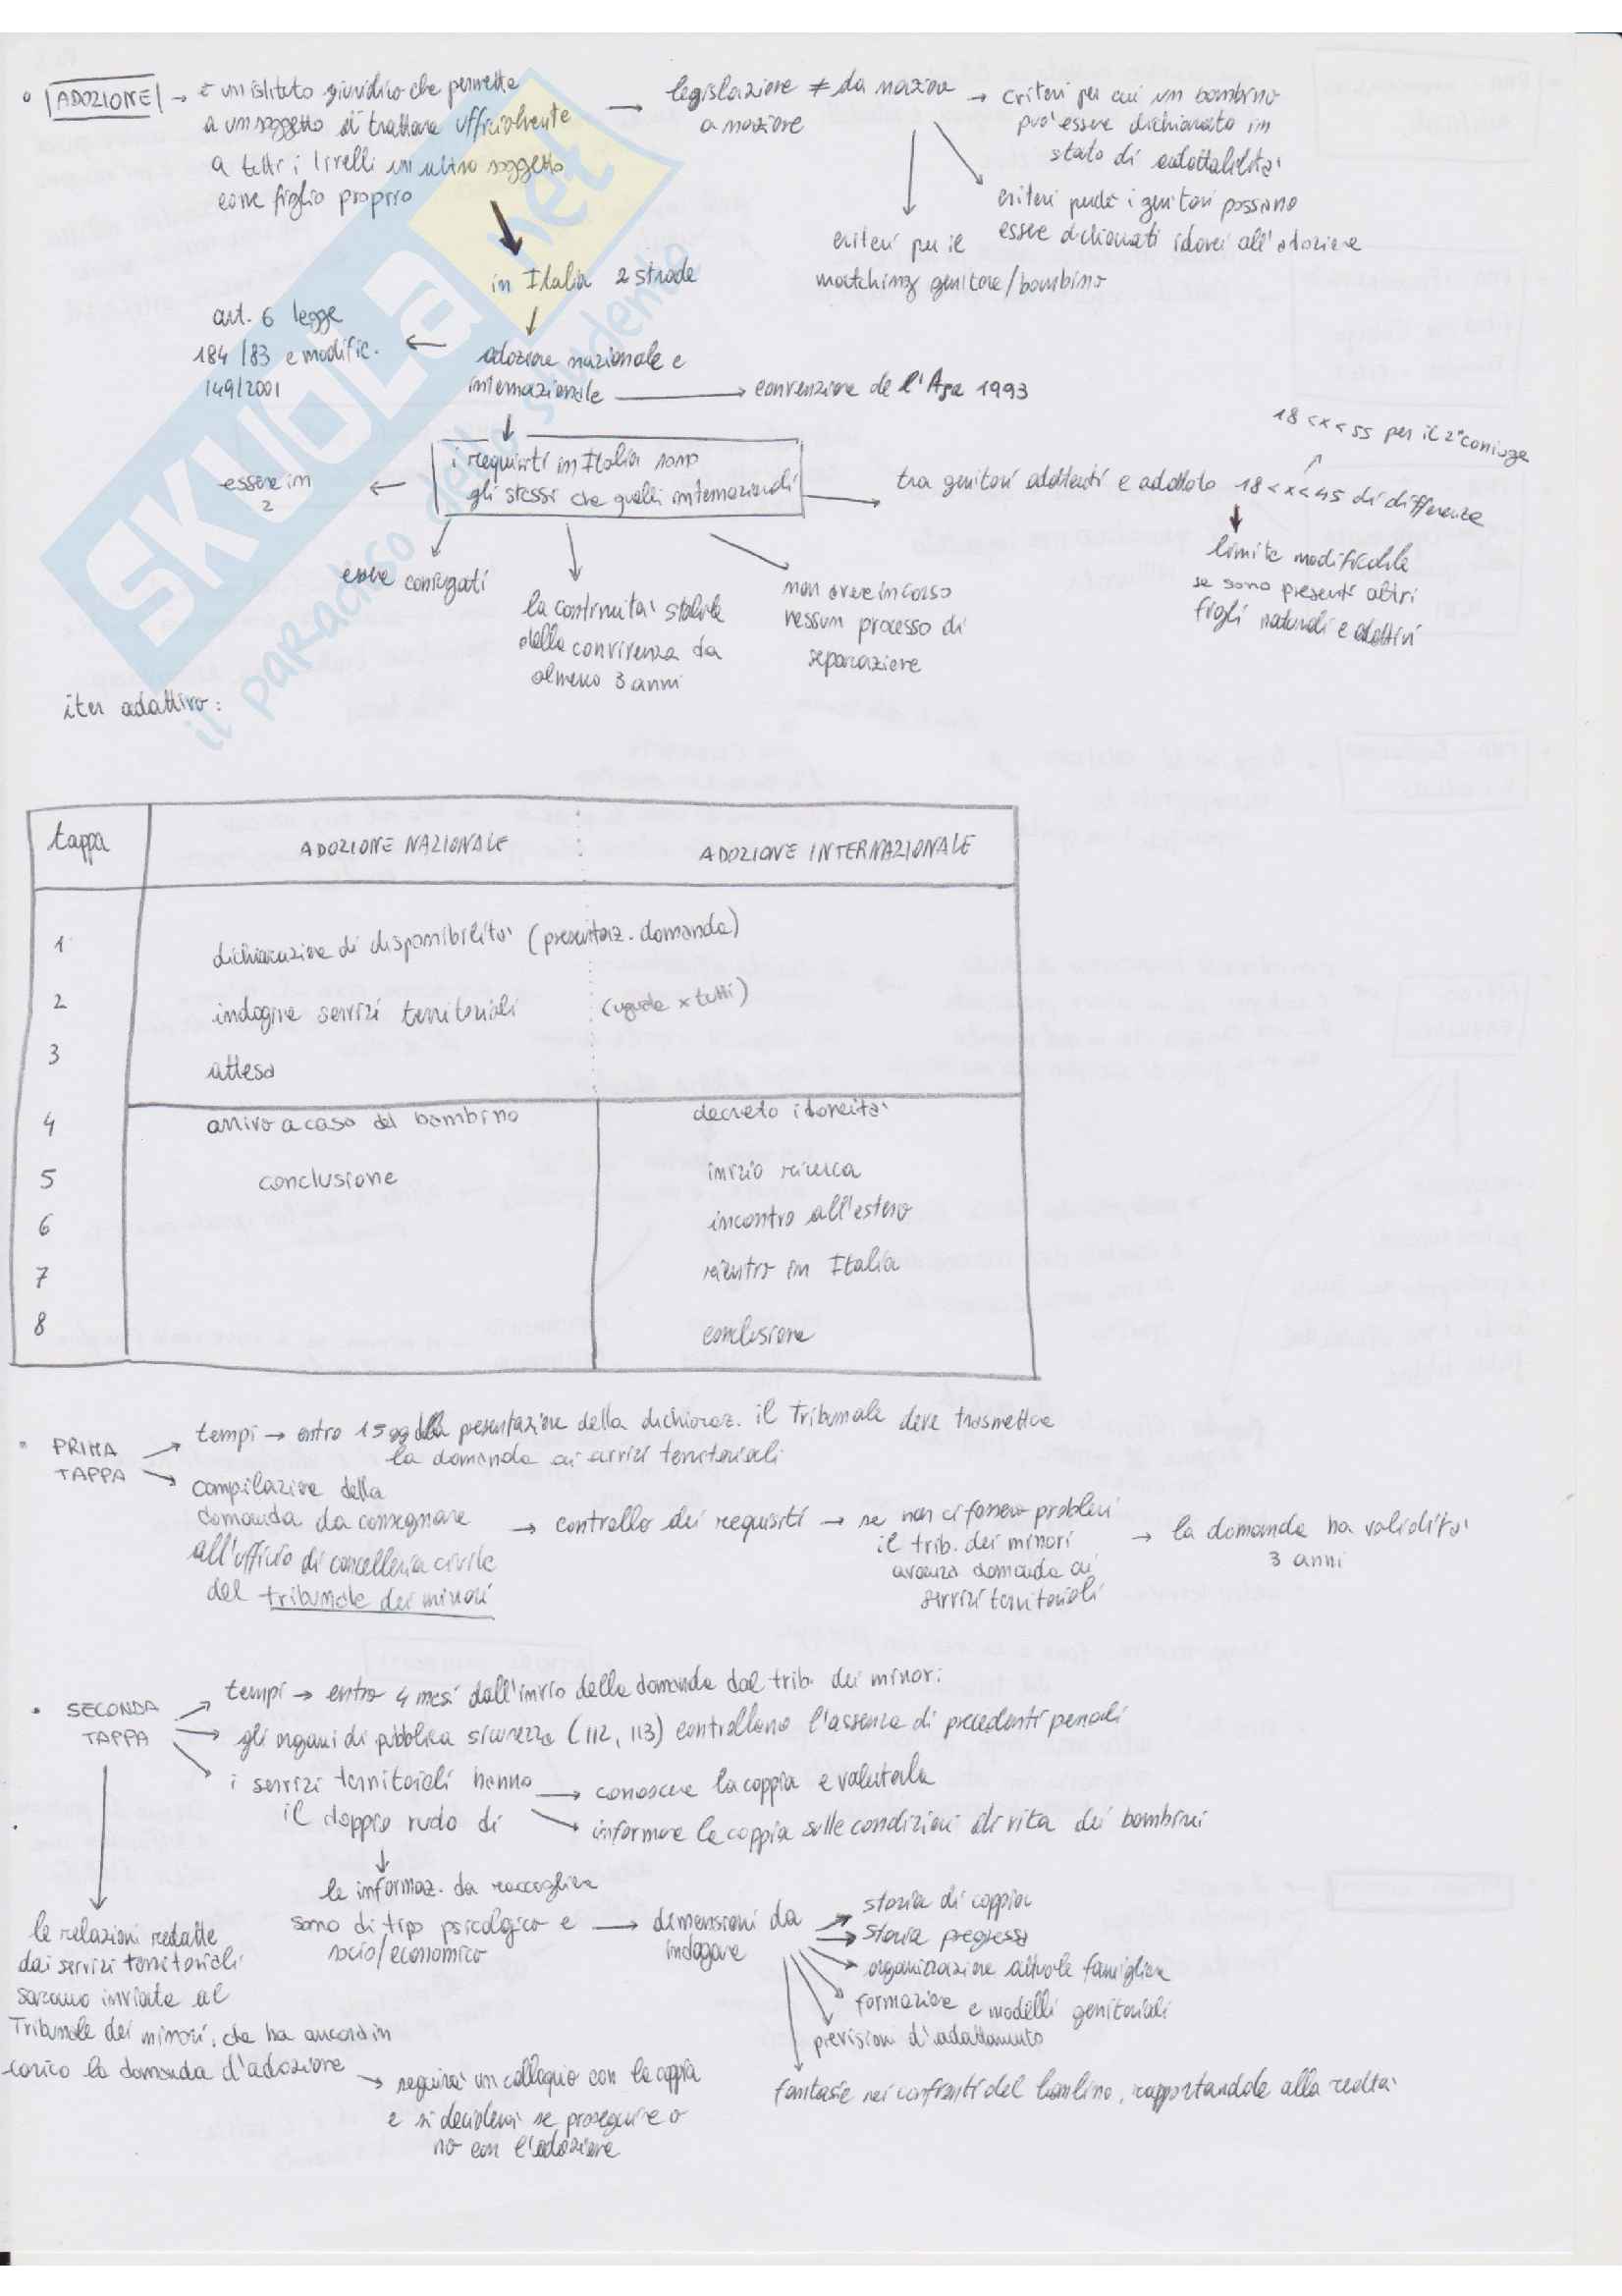 ADOZIONE → è un istituto giuridico che permette
a un soggetto di trattare ufficialmente
a tutti i livelli un altro soggetto
come figlio proprio
→ legislazione ≠ da nazione
a nazione
→ criteri per cui un bambino
può essere dichiarato in
stato di adottabilità
criteri perché i genitori possano
essere dichiarati idonei all'adozione
criteri per il
matching genitore/bambino
in Italia 2 strade
art. 6 legge
184/83 e modific.
149/2001
adozione nazionale e
internazionale → convenzione de l'Aja 1993
i requisiti in Italia sono
gli stessi che quelli internazionali
essere in
2
essere coniugati
la continuità stabile
della convivenza da
almeno 3 anni
non avere in corso
nessun processo di
separazione
tra genitori adottanti e adottato 18<x<45 di differenza
18<x<55 per il 2° coniuge
limite modificabile
se sono presenti altri
figli naturali e adottivi
SKUOLA.net
il paradiso dello studente
iter adottivo:
tappa ADOZIONE NAZIONALE ADOZIONE INTERNAZIONALE
1 dichiarazione di disponibilità (presentaz. domanda)
2 indagine servizi territoriali (uguale x tutti)
3 attesa
4 arrivo a casa del bambino decreto idoneità
5 conclusione inizio ricerca
6 incontro all'estero
7 rientro in Italia
8 conclusione
PRIMA
TAPPA
tempi → entro 15 gg dalla presentazione della dichiaraz. il Tribunale deve trasmettere
la domanda ai servizi territoriali
compilazione della
domanda da consegnare
all'ufficio di cancelleria civile
del tribunale dei minori
→ controllo dei requisiti → se non ci fossero problemi
il trib. dei minori
avanza domanda ai
servizi territoriali
→ la domanda ha validità
3 anni
SECONDA
TAPPA
tempi → entro 4 mesi dall'invio della domanda dal trib. dei minori
gli organi di pubblica sicurezza (112, 113) controllano l'assenza di precedenti penali
i servizi territoriali hanno
il doppio ruolo di
→ conoscere la coppia e valutarla
informare la coppia sulle condizioni di vita dei bambini
le informaz. da raccogliere
sono di tipo psicologico e
socio/economico
→ dimensioni da
indagare
storia di coppia
storia pregressa
organizzazione attuale famigliare
formazione e modelli genitoriali
previsioni d'adattamento
fantasie nei confronti del bambino, rapportandole alla realtà
le relazioni redatte
dai servizi territoriali
saranno inviate al
Tribunale dei minori, che ha ancora in
carico la domanda d'adozione
→ seguirà un colloquio con la coppia
e si deciderà se proseguire o
no con l'adozione